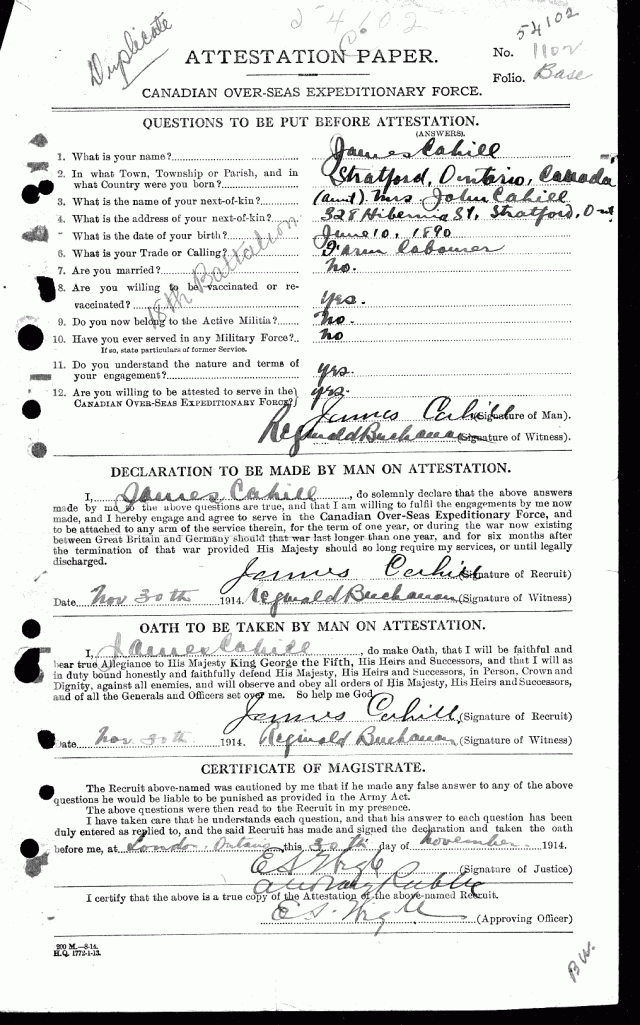 54102
54102
Duplicate
ATTESTATION PAPER.
No. 1102
Folio. Base
CANADIAN OVER-SEAS EXPEDITIONARY FORCE.
QUESTIONS TO BE PUT BEFORE ATTESTATION.
(ANSWERS).
1. What is your name? James Cahill
2. In what Town, Township or Parish, and in
what Country were you born? Stratford, Ontario, Canada
3. What is the name of your next-of-kin? (aunt) Mrs John Cahill
4. What is the address of your next-of-kin? 328 Hibernia St, Stratford, Ont
" What is the date of your birth? June 10, 1890
6. What is your Trade or Calling? Farm Labourer
7. Are you married? No.
8. Are you willing to be vaccinated or re-
vaccinated? Yes.
9. Do you now belong to the Active Militia? No.
10. Have you ever served in any Military Force? No
If so, state particulars of former Service.
11. Do you understand the nature and terms of
your engagement? yes.
12. Are you willing to be attested to serve in the
CANADIAN OVER-SEAS EXPEDITIONARY FORCE? yes.
18th Battalion
James Cahill (Signature of Man).
Reginald Buchanan (Signature of Witness).
DECLARATION TO BE MADE BY MAN ON ATTESTATION.
I, James Cahill, do solemnly declare that the above answers
made by me to the above questions are true, and that I am willing to fulfil the engagements by me now
made, and I hereby engage and agree to serve in the Canadian Over-Seas Expeditionary Force, and
to be attached to any arm of the service therein, for the term of one year, or during the war now existing
between Great Britain and Germany should that war last longer than one year, and for six months after
the termination of that war provided His Majesty should so long require my services, or until legally
discharged.
James Cahill (Signature of Recruit)
Date Nov 30th 1914. Reginald Buchanan (Signature of Witness)
OATH TO BE TAKEN BY MAN ON ATTESTATION.
I, James Cahill, do make Oath, that I will be faithful and
bear true Allegiance to His Majesty King George the Fifth, His Heirs and Successors, and that I will as
in duty bound honestly and faithfully defend His Majesty, His Heirs and Successors, in Person, Crown and
Dignity, against all enemies, and will observe and obey all orders of His Majesty, His Heirs and Successors,
and of all the Generals and Officers set over me. So help me God
James Cahill (Signature of Recruit)
Date Nov 30th 1914. Reginald Buchanan (Signature of Witness)
CERTIFICATE OF MAGISTRATE.
The Recruit above-named was cautioned by me that if he made any false answer to any of the above
questions he would be liable to be punished as provided in the Army Act.
The above questions were then read to the Recruit in my presence.
I have taken care that he understands each question, and that his answer to each question has been
duly entered as replied to, and the said Recruit has made and signed the declaration and taken the oath
before me, at London, Ontario this 30th day of November 1914.
E S Wigle (Signature of Justice)
a Notary Public
I certify that the above is a true copy of the Attestation of the above-named Recruit.
E S. Wigle (Approving Officer)
200 M.—8-14.
H.Q. 1772-1-13.
B W.